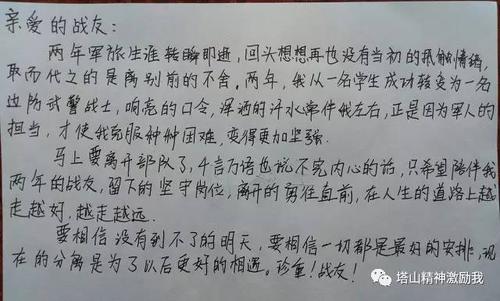 亲爱的战友：
两年军旅生涯转瞬即逝，回头想想再也没有当初的抵触情绪，
取而代之的是离别前的不舍。两年，我从一名学生成功转变为一名
边防武警战士，响亮的口令，挥洒的汗水常伴我左右，正是因为军人的
担当，才使我克服种种困难，变得更加坚强.
马上要离开部队了，千言万语也说不完内心的话，只希望陪伴我
两年的战友，留下的坚守岗位，离开的勇往直前，在人生的道路上越
走越好，越走越远.
要相信没有到不了的明天，要相信一切都是最好的安排，现
在的分离是为了以后更好的相遇。珍重！战友！
塔山精神激励我